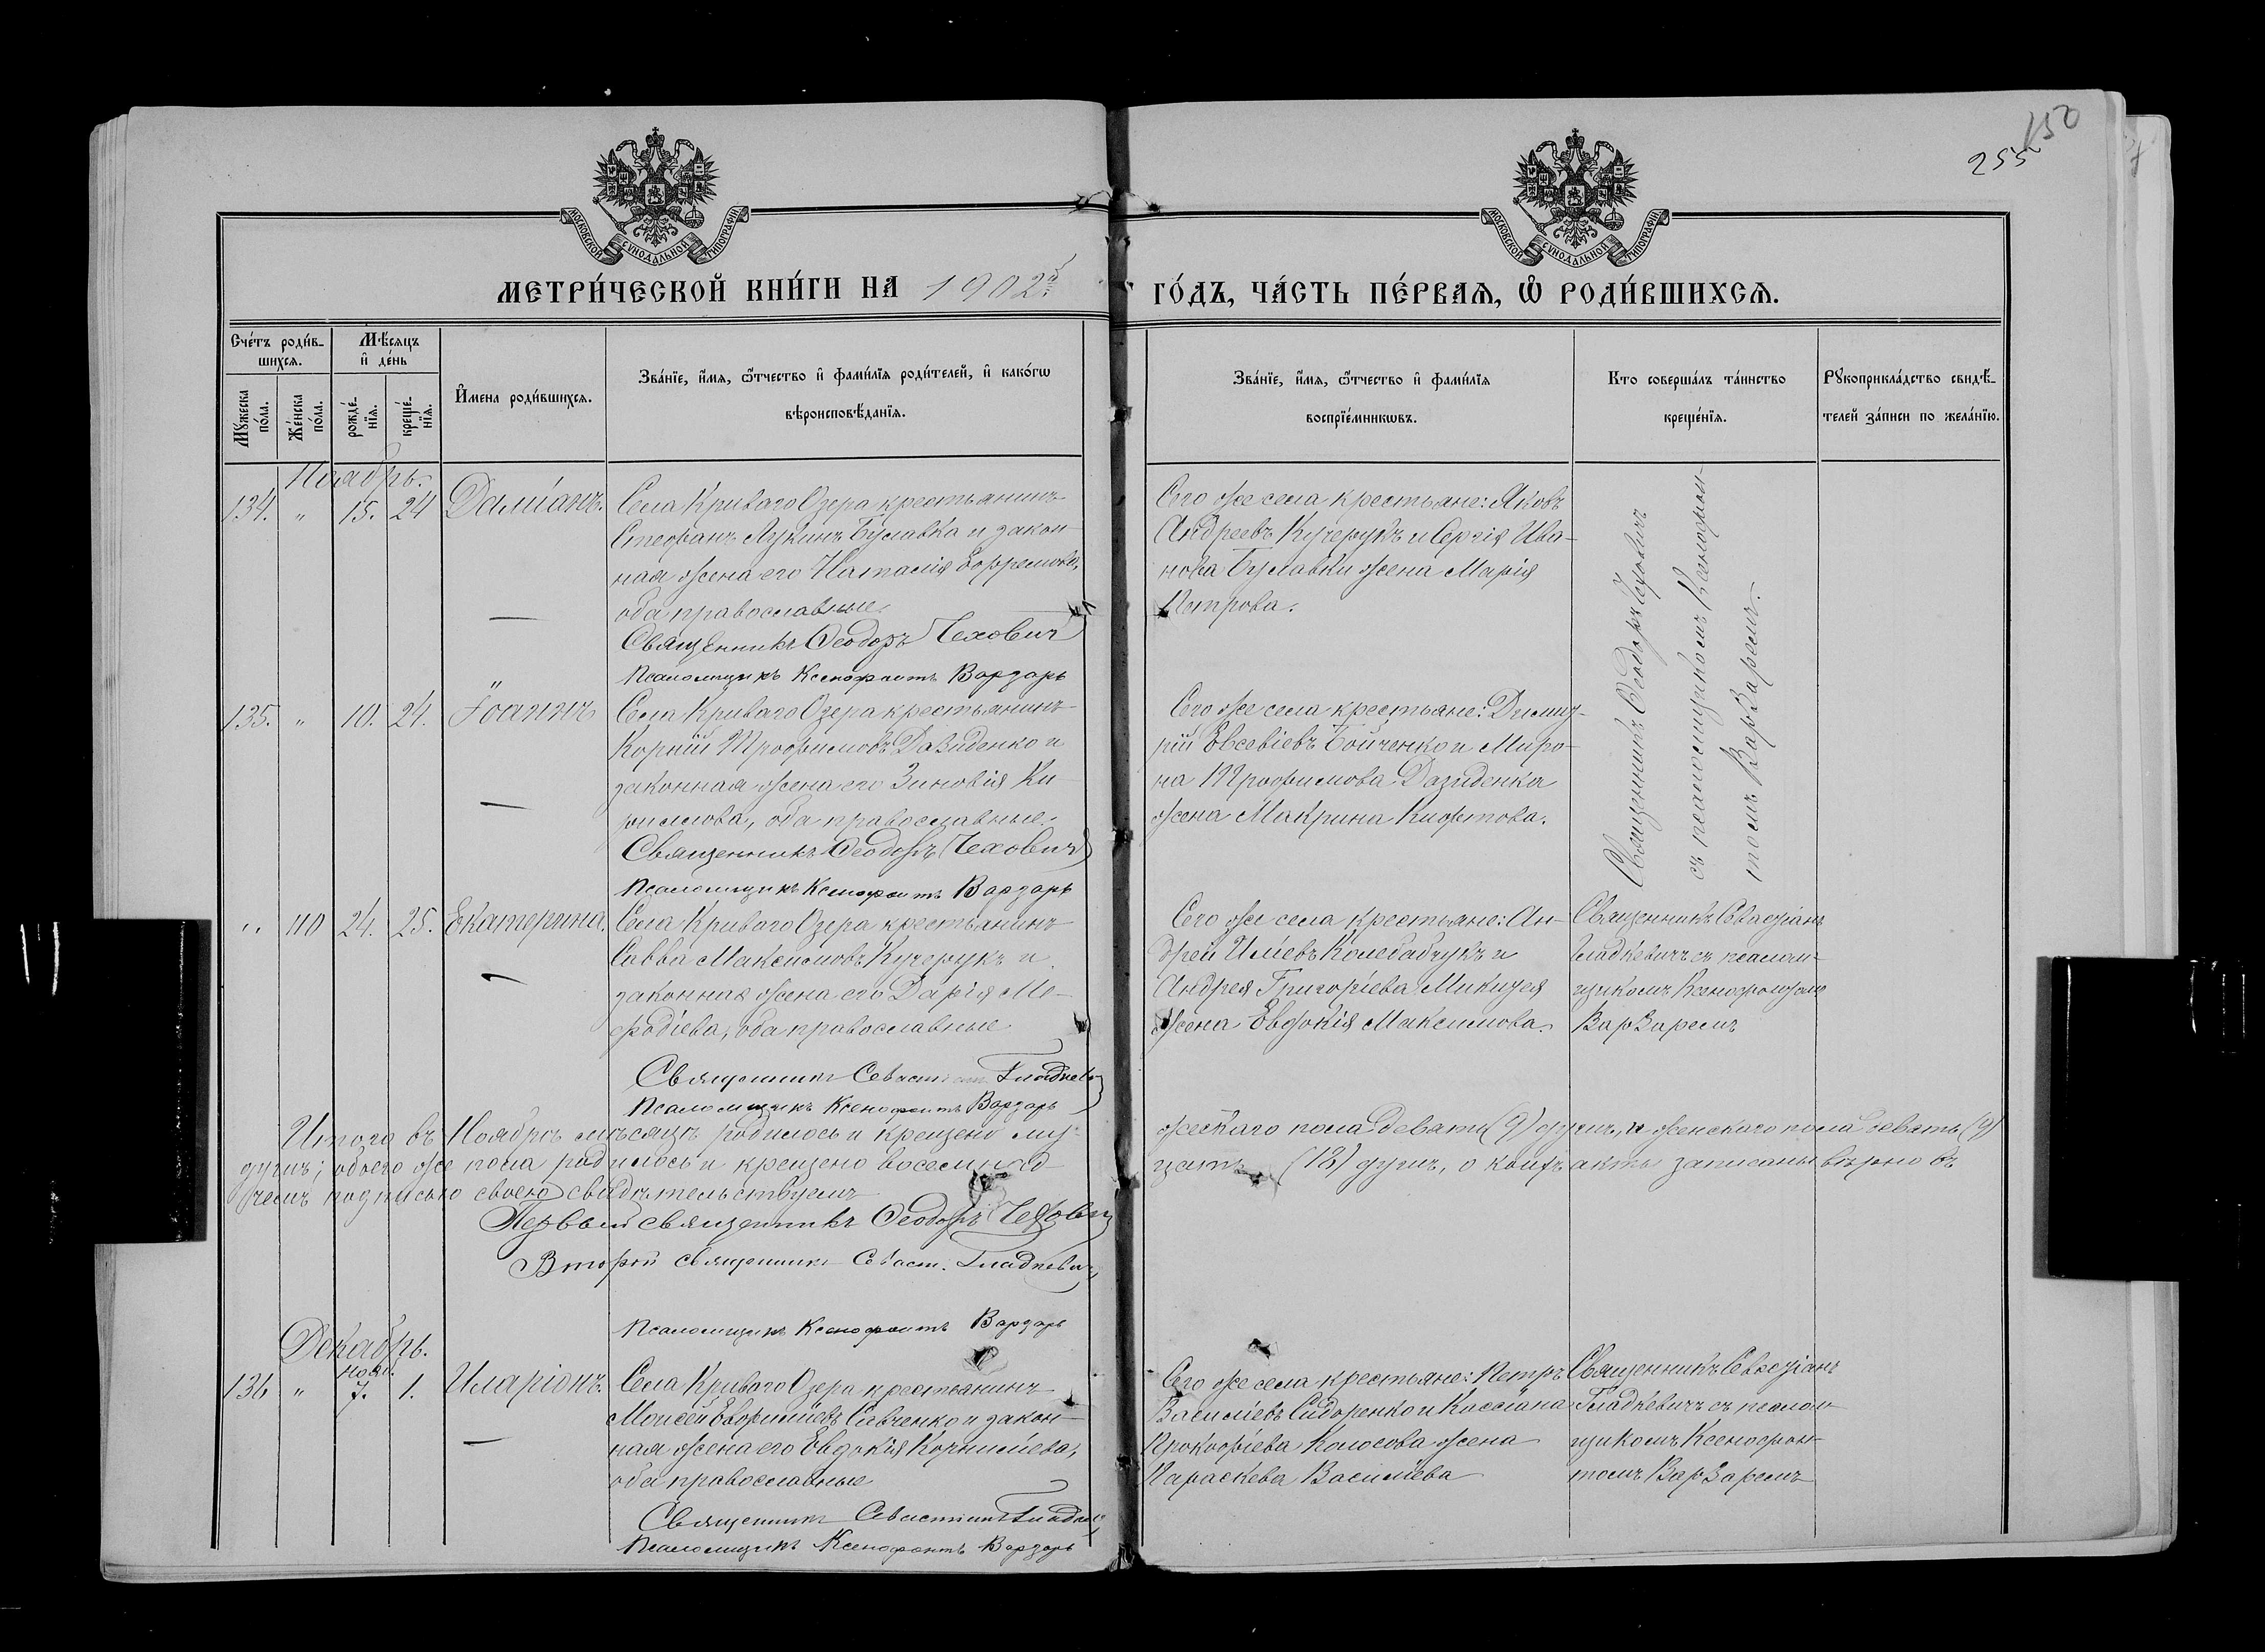 150
255
МОСКОВСКОЙ СѴНОДАЛЬНОЙ ТИПОГРАФІИ
МОСКОВСКОЙ СѴНОДАЛЬНОЙ ТИПОГРАФІИ
МЕТРИ́ЧЕСКОЙ КНИ́ГИ НА 1902й
ГО́ДЪ, ЧА́СТЬ ПЕ́РВАѦ, Ѡ҆ РОДИ́ВШИХСѦ.
Сче́тъ роди́в-
шихсѧ.
Мѣ́сѧцъ
и҆ де́нь
Мꙋ́жеска по́ла.
Же́нска по́ла.
рожде́-нїѧ.
креще́-нїѧ.
И҆мена роди́вшихсѧ.
Зва́нїе, и҆́мѧ, ѻ҆́тчество и҆ фами́лїѧ роди́телей, и҆ како́гѡ
вѣроисповѣ́данїѧ.
Зва́нїе, и҆́мѧ, ѻ҆́тчество и҆ фами́лїѧ
воспрїе́мникѡвъ.
Кто соверша́лъ та́инство
креще́нїѧ.
Рꙋкоприкла́дство свидѣ́-
телей за́писи по жела́нїю.
Ноябрь.
134. " 15. 24 Даміанъ. Села Криваго Озера крестьянинъ
Стефанъ Лукинъ Булавка и закон-
ная жена его Наталія Ефремова,
оба православные.
Священникъ Ѳеодоръ Чеховичъ
Псаломщикъ Ксенофонтъ Варзарь
Сего же села крестьяне: Яковъ
Андреевъ Кучерукъ и Сергія Ива-
нова Булавки жена Марія
Петрова.
Священникъ Ѳеодоръ Чеховичъ
съ псаломщикомъ Ксенофон-
томъ Варзаремъ.
135. " 10. 24. Іоаннъ Села Криваго Озера крестьянинъ
Корній Трофимовъ Давиденко и
законная жена его Зиновія Ки-
риллова, оба православные.
Священникъ Ѳеодоръ Чеховичъ
Псаломщикъ Ксенофонтъ Варзарь
Сего же села крестьяне: Димит-
рій Евсевіевъ Бойченко и Миро-
на Трофимова Давиденка
жена Макрина
" 110 24. 25. Екатерина. Села Криваго Озера крестьянинъ
Савва Максимовъ Кучерукъ и
законная жена его Дарія Ме-
фодіева, оба православные
Священникъ Севастіанъ Гладкевичъ
Псаломщикъ Ксенофонтъ Варзарь
Сего же села крестьяне: Ан-
дрей Иліевъ Колебабчукъ и
Андрея Григоріева
жена Евдокія Максимова.
Священникъ Севастіанъ
Гладкевичъ съ псалом-
щикомъ Ксенофонтомъ
Варзаремъ
Итого въ Ноябрѣ мѣсяцѣ родилось и крещено му-
жескаго пола девять (9) душъ, и женскаго пола девять (9)
душъ; обоего же пола родилось и крещено восемнад-
цать (18) душъ, о коихъ акты записаны вѣрно въ
чемъ подписью своею свидѣтельствуемъ
Первый священникъ Ѳеодоръ Чеховичъ
Второй священникъ Севаст. Гладкевичъ
Псаломщикъ Ксенофонтъ Варзарь
Декабрь.
нояб.
136 " 7. 1. Иларіонъ. Села Криваго Озера крестьянинъ
Моисей Савченко и закон-
ная жена его Евдокія Корниліева,
оба православные
Священникъ Севастіанъ Гладкевичъ
Псаломщикъ Ксенофонтъ Варзарь
Сего же села крестьяне: Петръ
Василіевъ Сидоренко и Кассіана
Прокофіева Колосова жена
Параскева Василіева
Священникъ Севастіанъ
Гладкевичъ съ псалом-
щикомъ Ксенофон-
томъ Варзаремъ